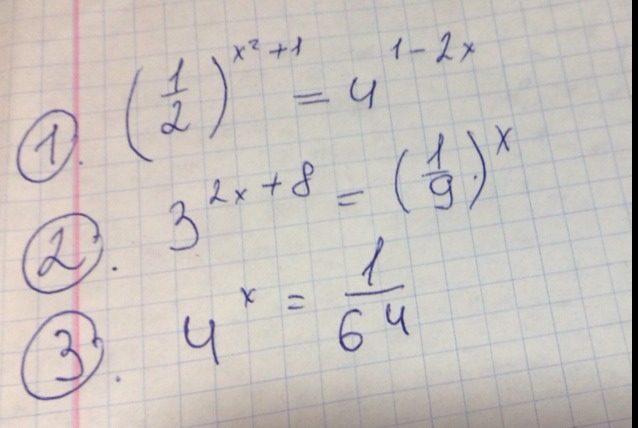 1. (1/2)^(x²+1) = 4^(1-2x)
2. 3^(2x+8) = (1/9)^x
3. 4^x = 1/64